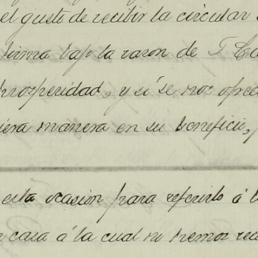 el gusto de recibir la circular
firma bajo la razon de T. Ca
prosperidad, y si se nos ofre
iera manera en su beneficio,
esta ocasion para referirlo á l
casa á la cual su hemos rec